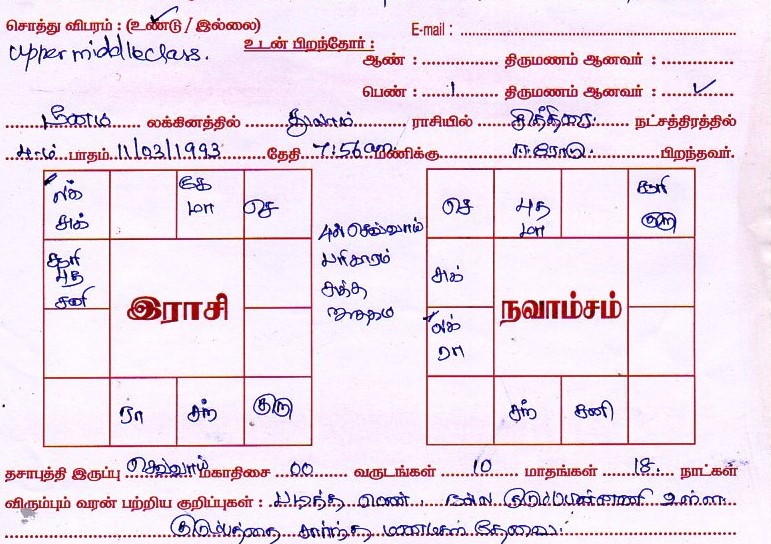 சொத்து விபரம் : (உண்டு / இல்லை)
E-mail :
Upper middle class.
உடன் பிறந்தோர் :
ஆண் : திருமணம் ஆனவர் :
பெண் : 1 திருமணம் ஆனவர் :
மீனம் லக்கினத்தில் துலாம் ராசியில் சித்திரை நட்சத்திரத்தில்
4-ம் பாதம் 11/03/1993 தேதி 7:56 am மணிக்கு ஈரோடு. பிறந்தவர்.
லக் சுக்
கே மா
செ
சூரி புத சனி
இராசி
ரா
சந்
குரு
4ல் செவ்வாய் பரிகாரம் சுத்த ஜாதகம்
செ
புத மா
சூரி குரு
சுக்
நவாம்சம்
லக் ரா
சந்
சனி
தசாபுத்தி இருப்பு செவ்வாய் மகாதிசை 00 வருடங்கள் 10 மாதங்கள் 18 நாட்கள்
விரும்பும் வரன் பற்றிய குறிப்புகள் : படித்த பெண், நல்ல குடும்பபாங்கான உள்ள
குடும்பத்தை சார்ந்த மணமகள் தேவை.